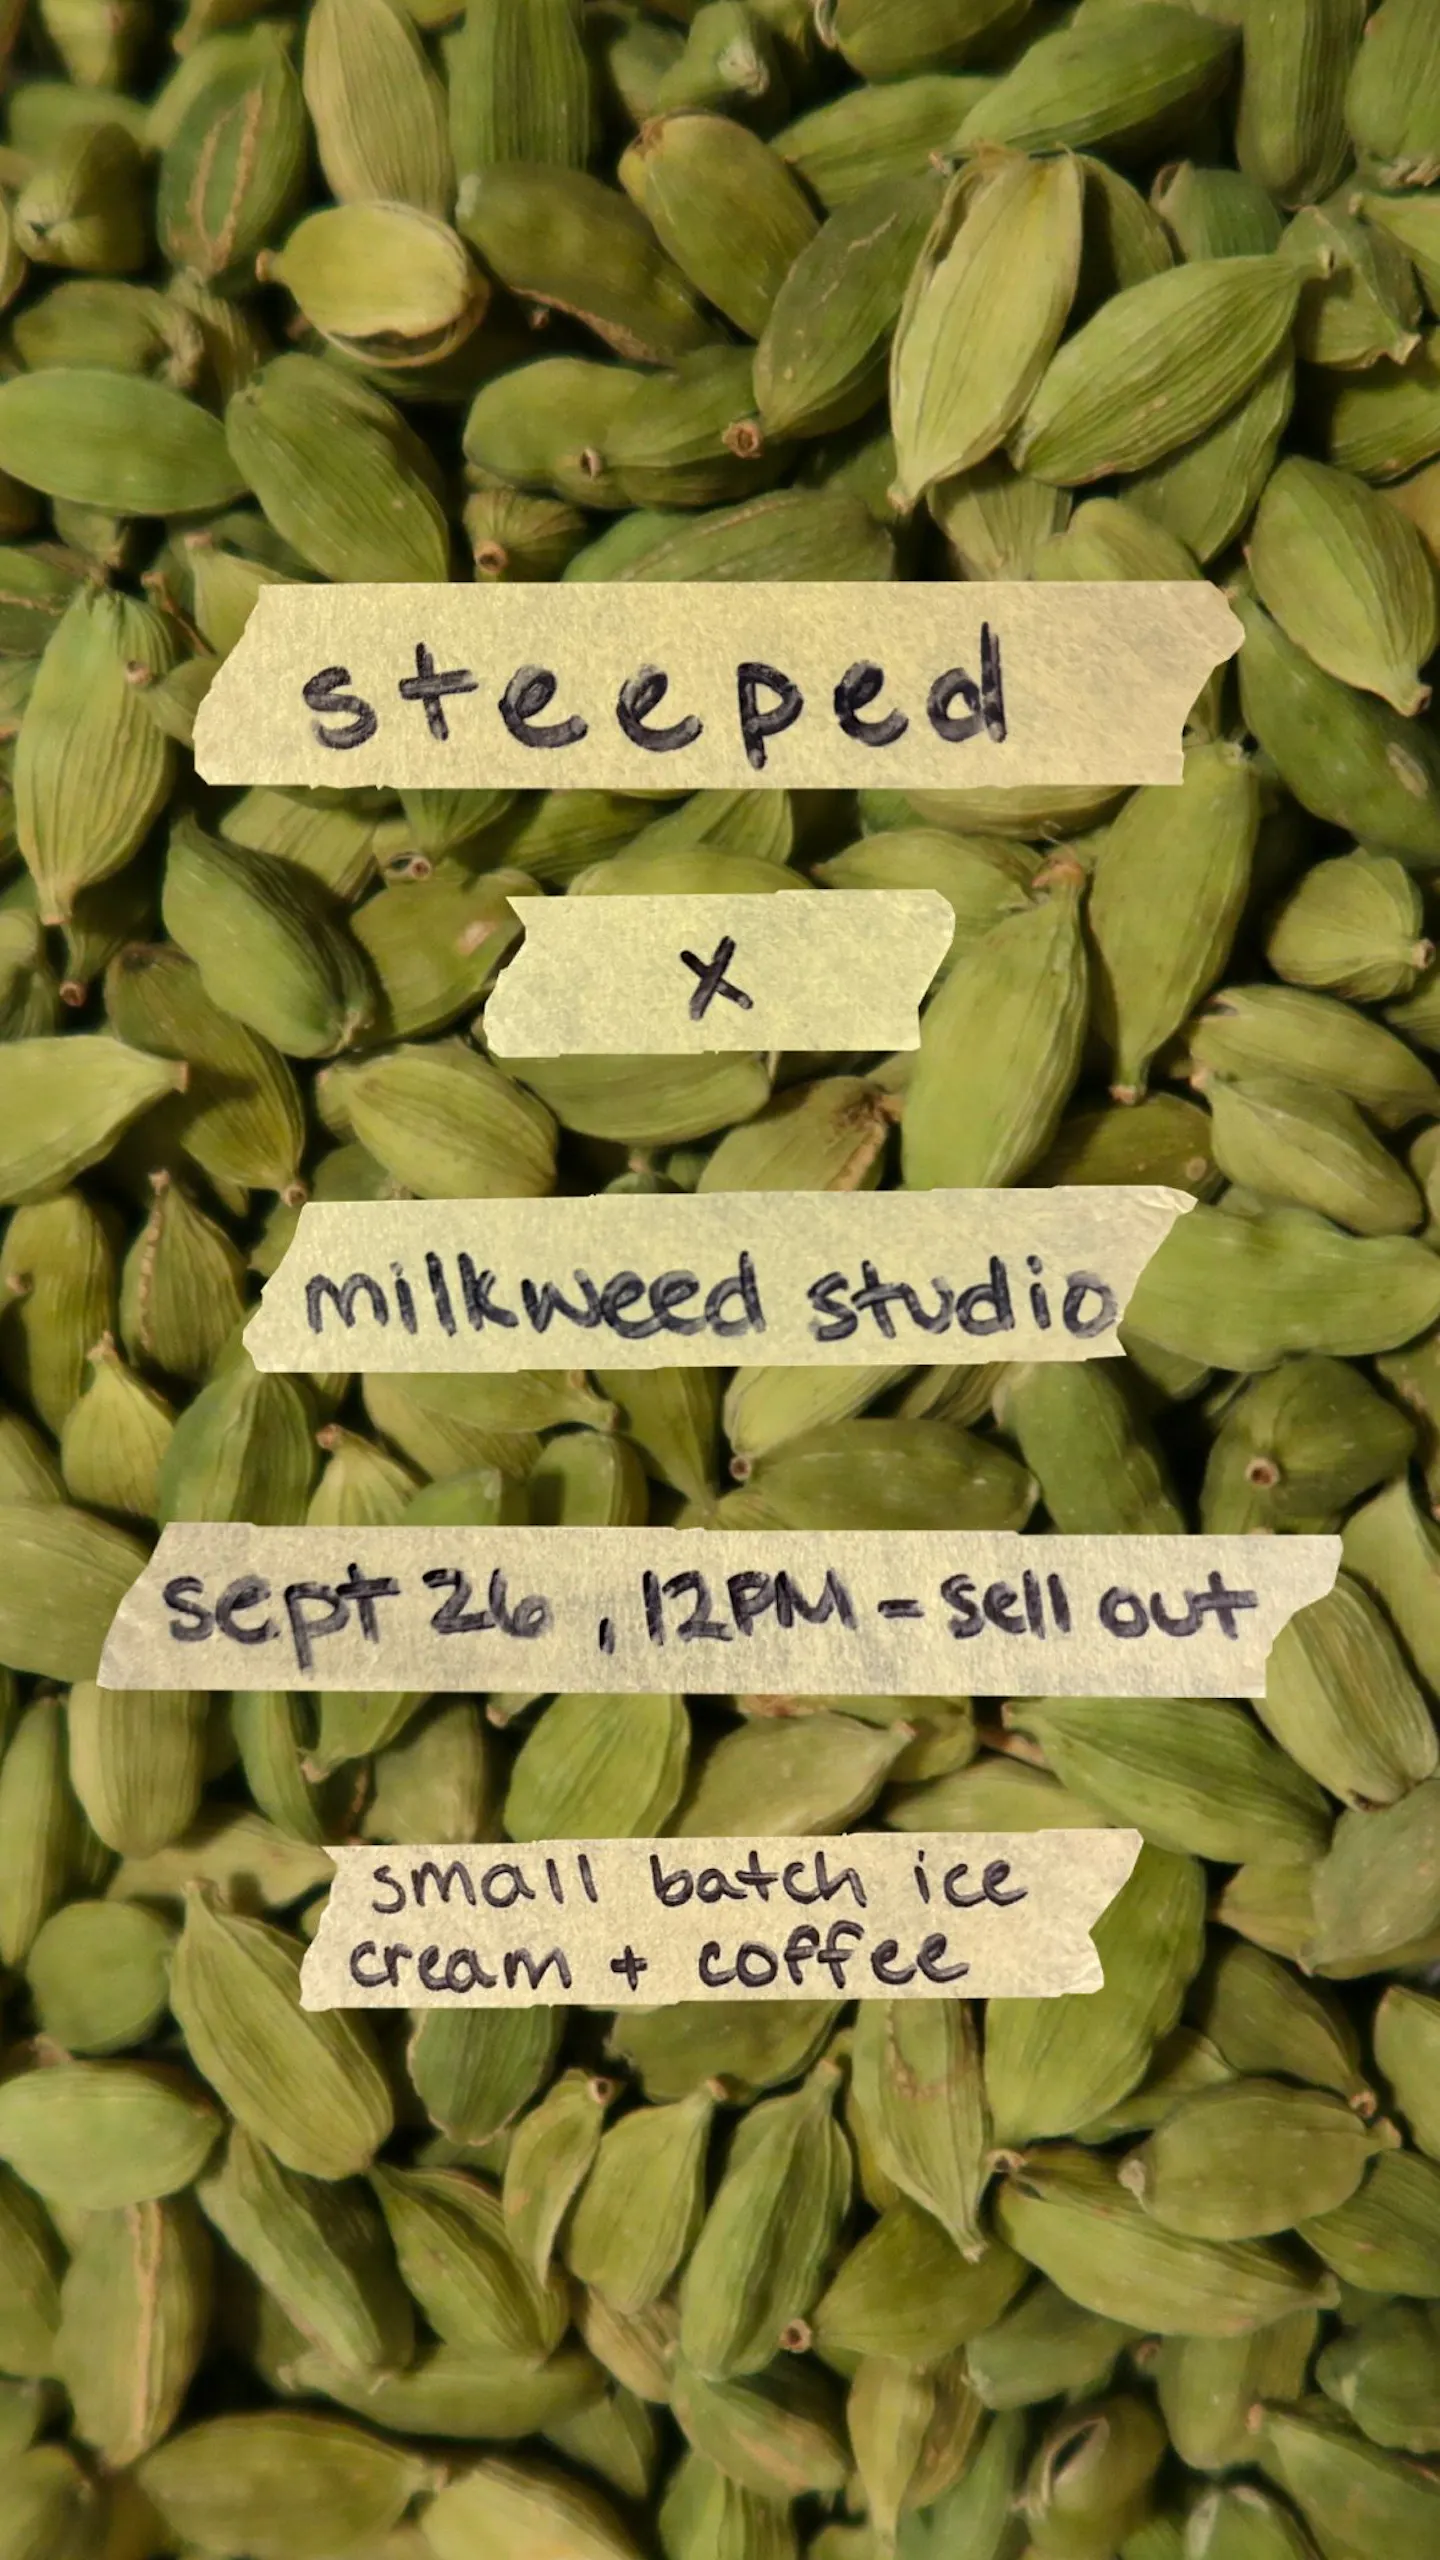 steeped
x
milkweed studio
sept 26, 12PM - sell out
small batch ice
cream + coffee